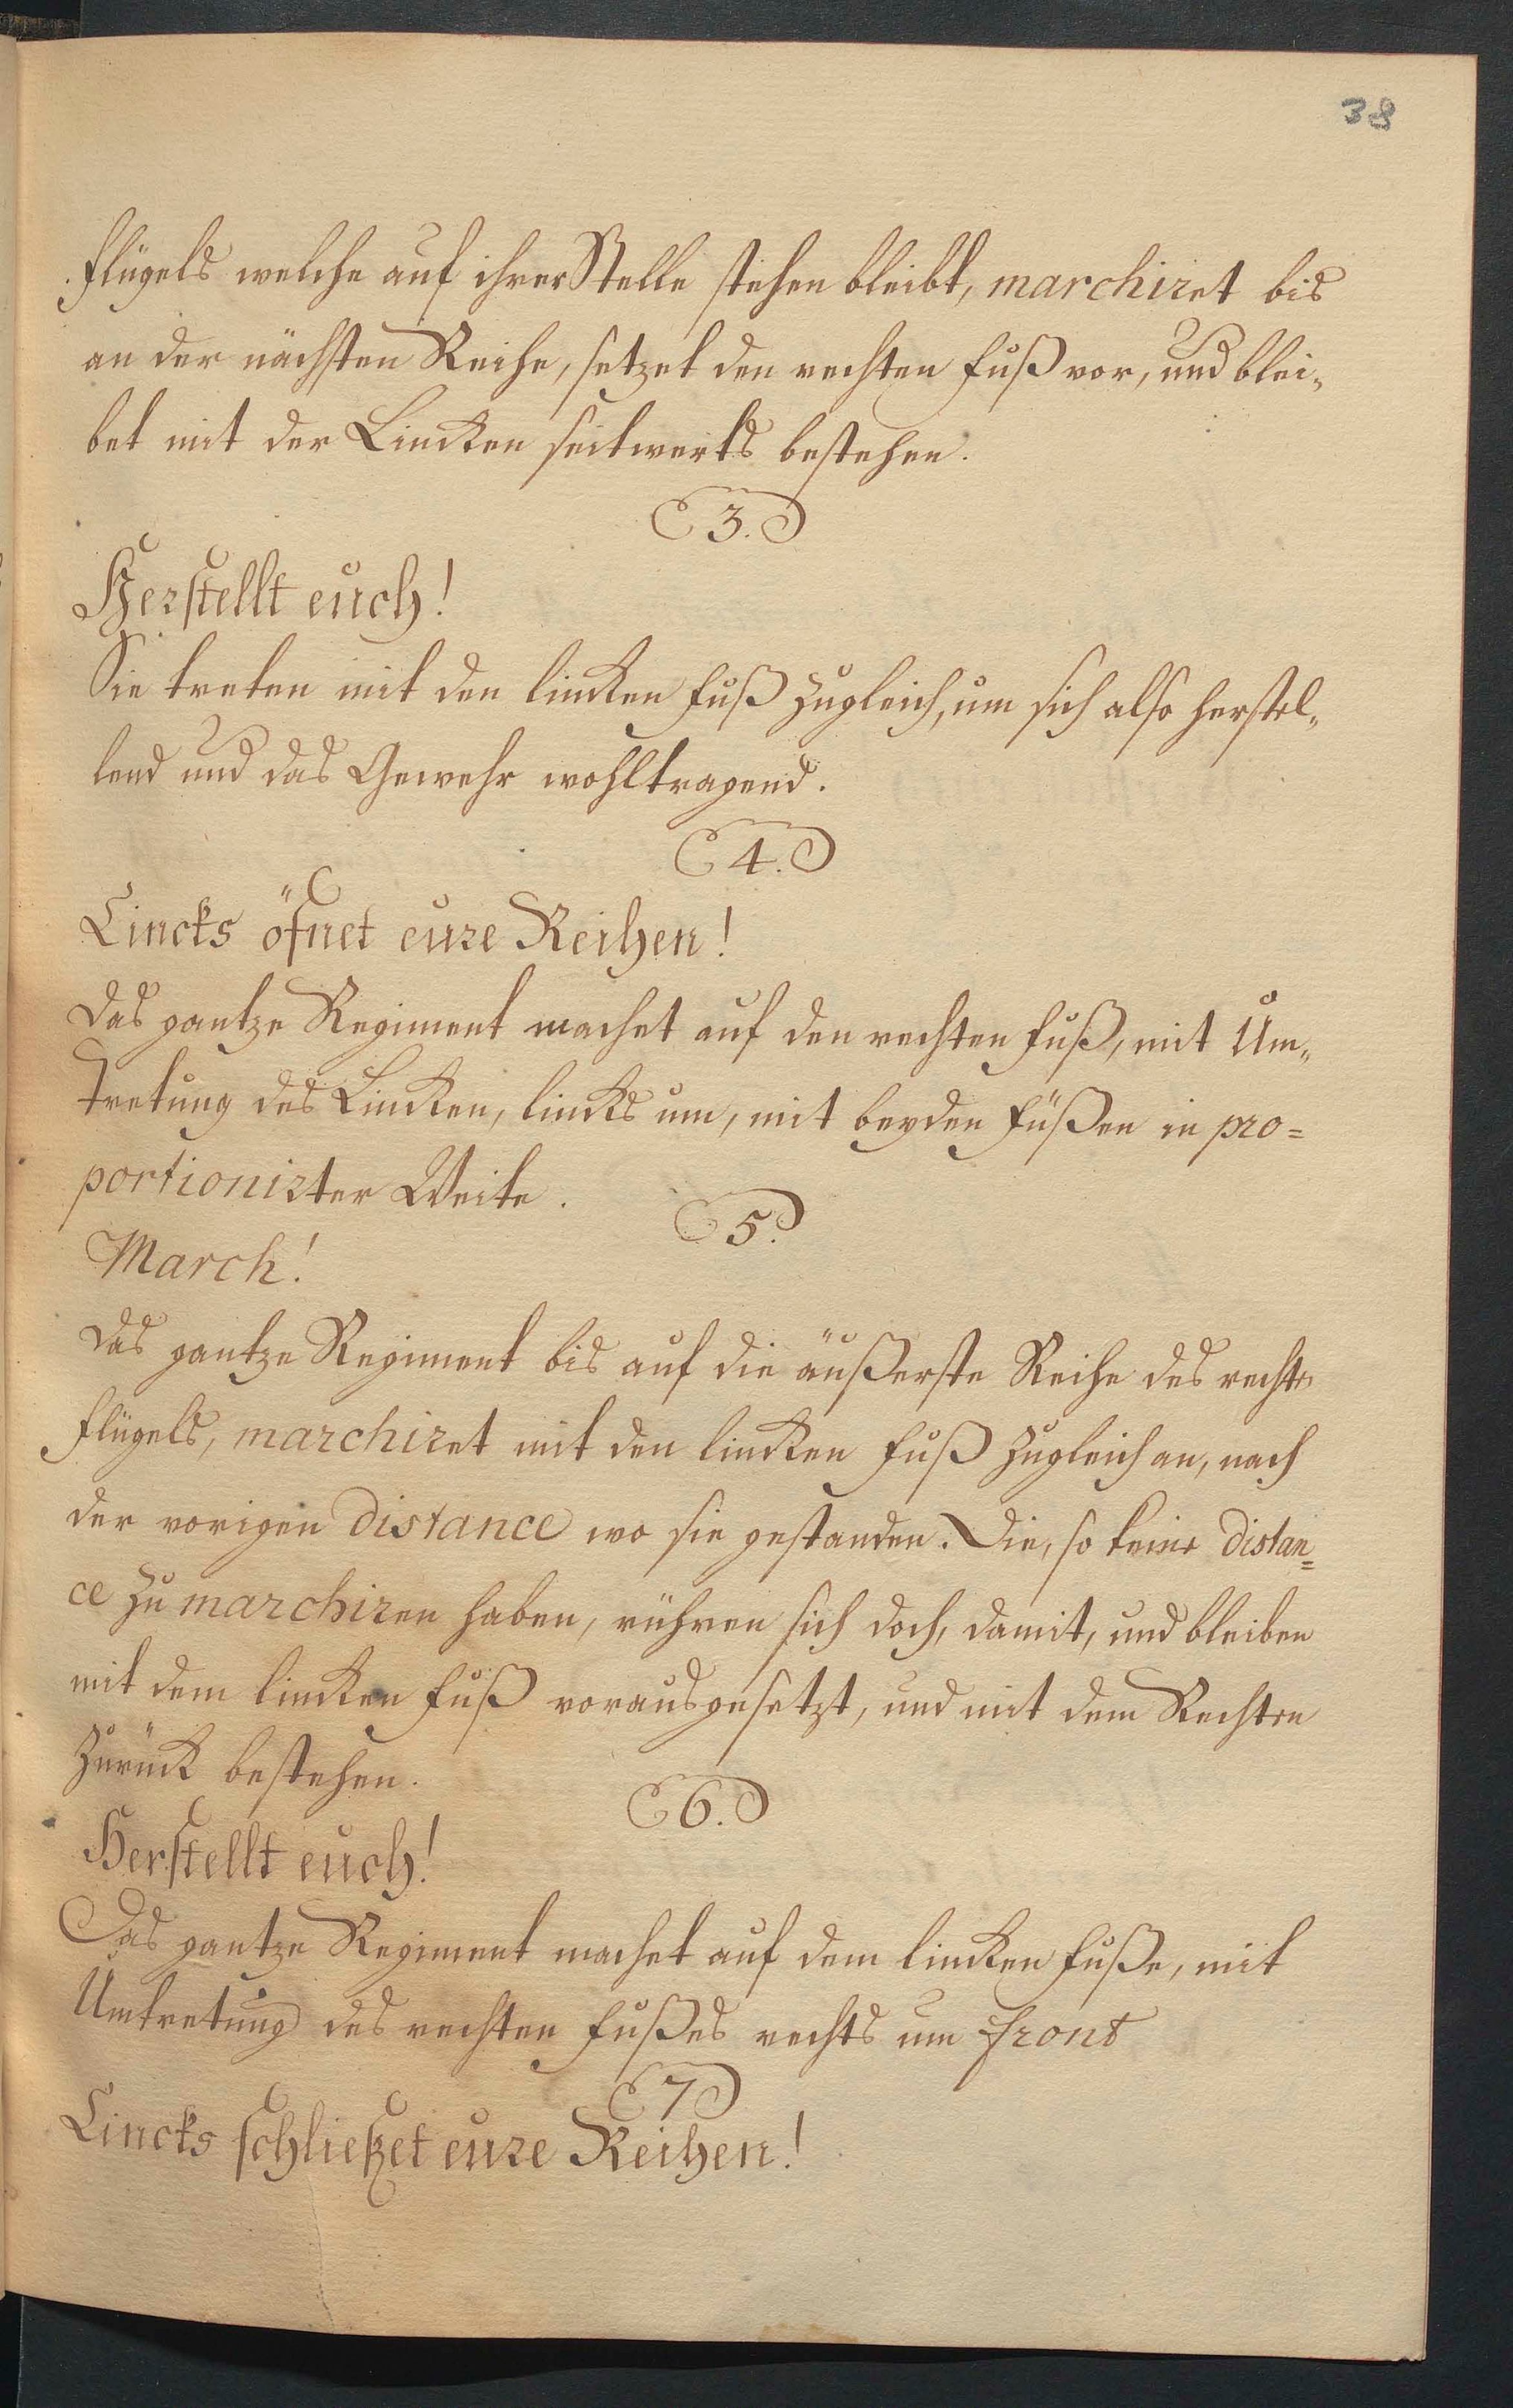 38
Flügels welche auf ihrer Stelle stehen bleibt, marchiret bis
an der nächsten Reihe, setzet den rechten Fuß vor, und blei„
bet mit der Lincken seitwerts bestehen.
3.
Herstellt euch!
Sie treten mit den lincken Fuß zugleich, um sich also herstel„
lend und das Gewehr wohltragend.
4.
Lincks öfnet eure Reihen!
Das gantze Regiment machet auf den rechten Fuß, mit Um„
tretung des Lincken, lincks um, mit beyden Füßen in pro=
portionirter Weite.
5.
March!
Das gantze Regiment bis auf die äußerste Reihe des rechten
Flügels, marchiret mit den lincken Fuß zugleich an, nach
der vorigen Distance wo sie gestanden. Die, so keine Distan=
ce zu marchiren haben, rühren sich doch, damit, und bleiben
mit dem lincken Fuß vorausgesetzt, und mit dem Rechten
zurück bestehen.
6.
Herstellt euch!
Das gantze Regiment machet auf dem lincken Fuße, mit
Umtretung des rechten Fußes rechts um Front
7
Lincks schließet eure Reihen!